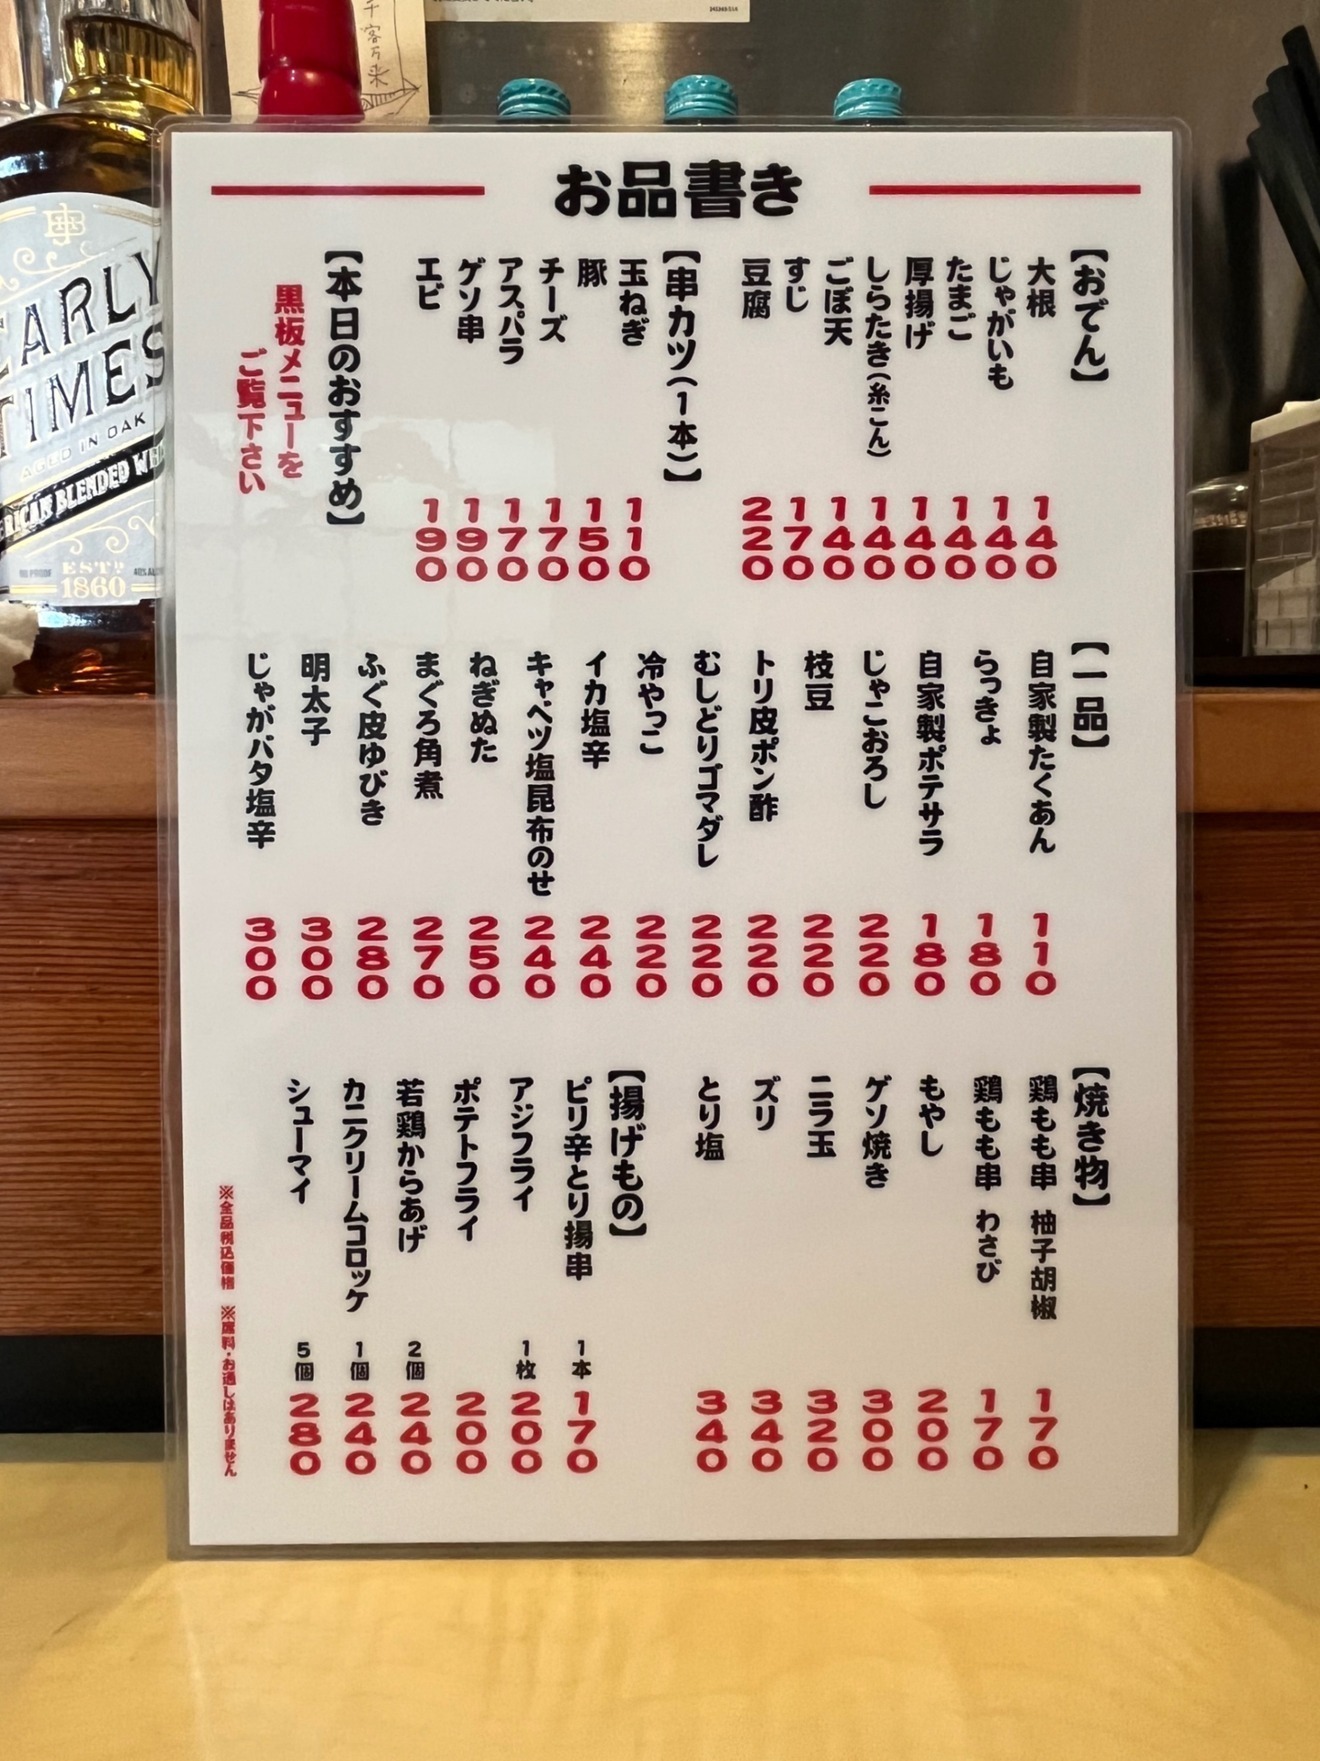 お品書き
【おでん】
大根 140
じゃがいも 140
たまご 140
厚揚げ 140
しらたき(糸こん) 140
ごぼ天 140
すじ 170
豆腐 220
【串カツ(1本)】
玉ねぎ 110
豚 150
チーズ 170
アスパラ 170
ゲソ串 190
エビ 190
【本日のおすすめ】
黒板メニューを
ご覧下さい
【一品】
自家製たくあん 110
らっきょ 180
自家製ポテサラ 180
じゃこおろし 220
枝豆 220
トリ皮ポン酢 220
むしどりゴマダレ 220
冷やっこ 220
イカ塩辛 240
キャベツ塩昆布のせ 240
ねぎぬた 250
まぐろ角煮 270
ふぐ皮ゆびき 280
明太子 300
じゃがバタ塩辛 300
【焼き物】
鶏もも串 柚子胡椒 170
鶏もも串 わさび 170
もやし 200
ゲソ焼き 300
ニラ玉 320
ズリ 340
とり塩 340
【揚げもの】
ピリ辛とり揚串 1本 170
アジフライ 1枚 200
ポテトフライ 200
若鶏からあげ 2個 240
カニクリームコロッケ 1個 240
シューマイ 5個 280
※全品税込価格 ※席料・お通しはありません
千客万来
EARLY
TIMES
AGED IN OAK
AMERICAN BLENDED WHI
80 PROOF
ESTD
1860
40% AL